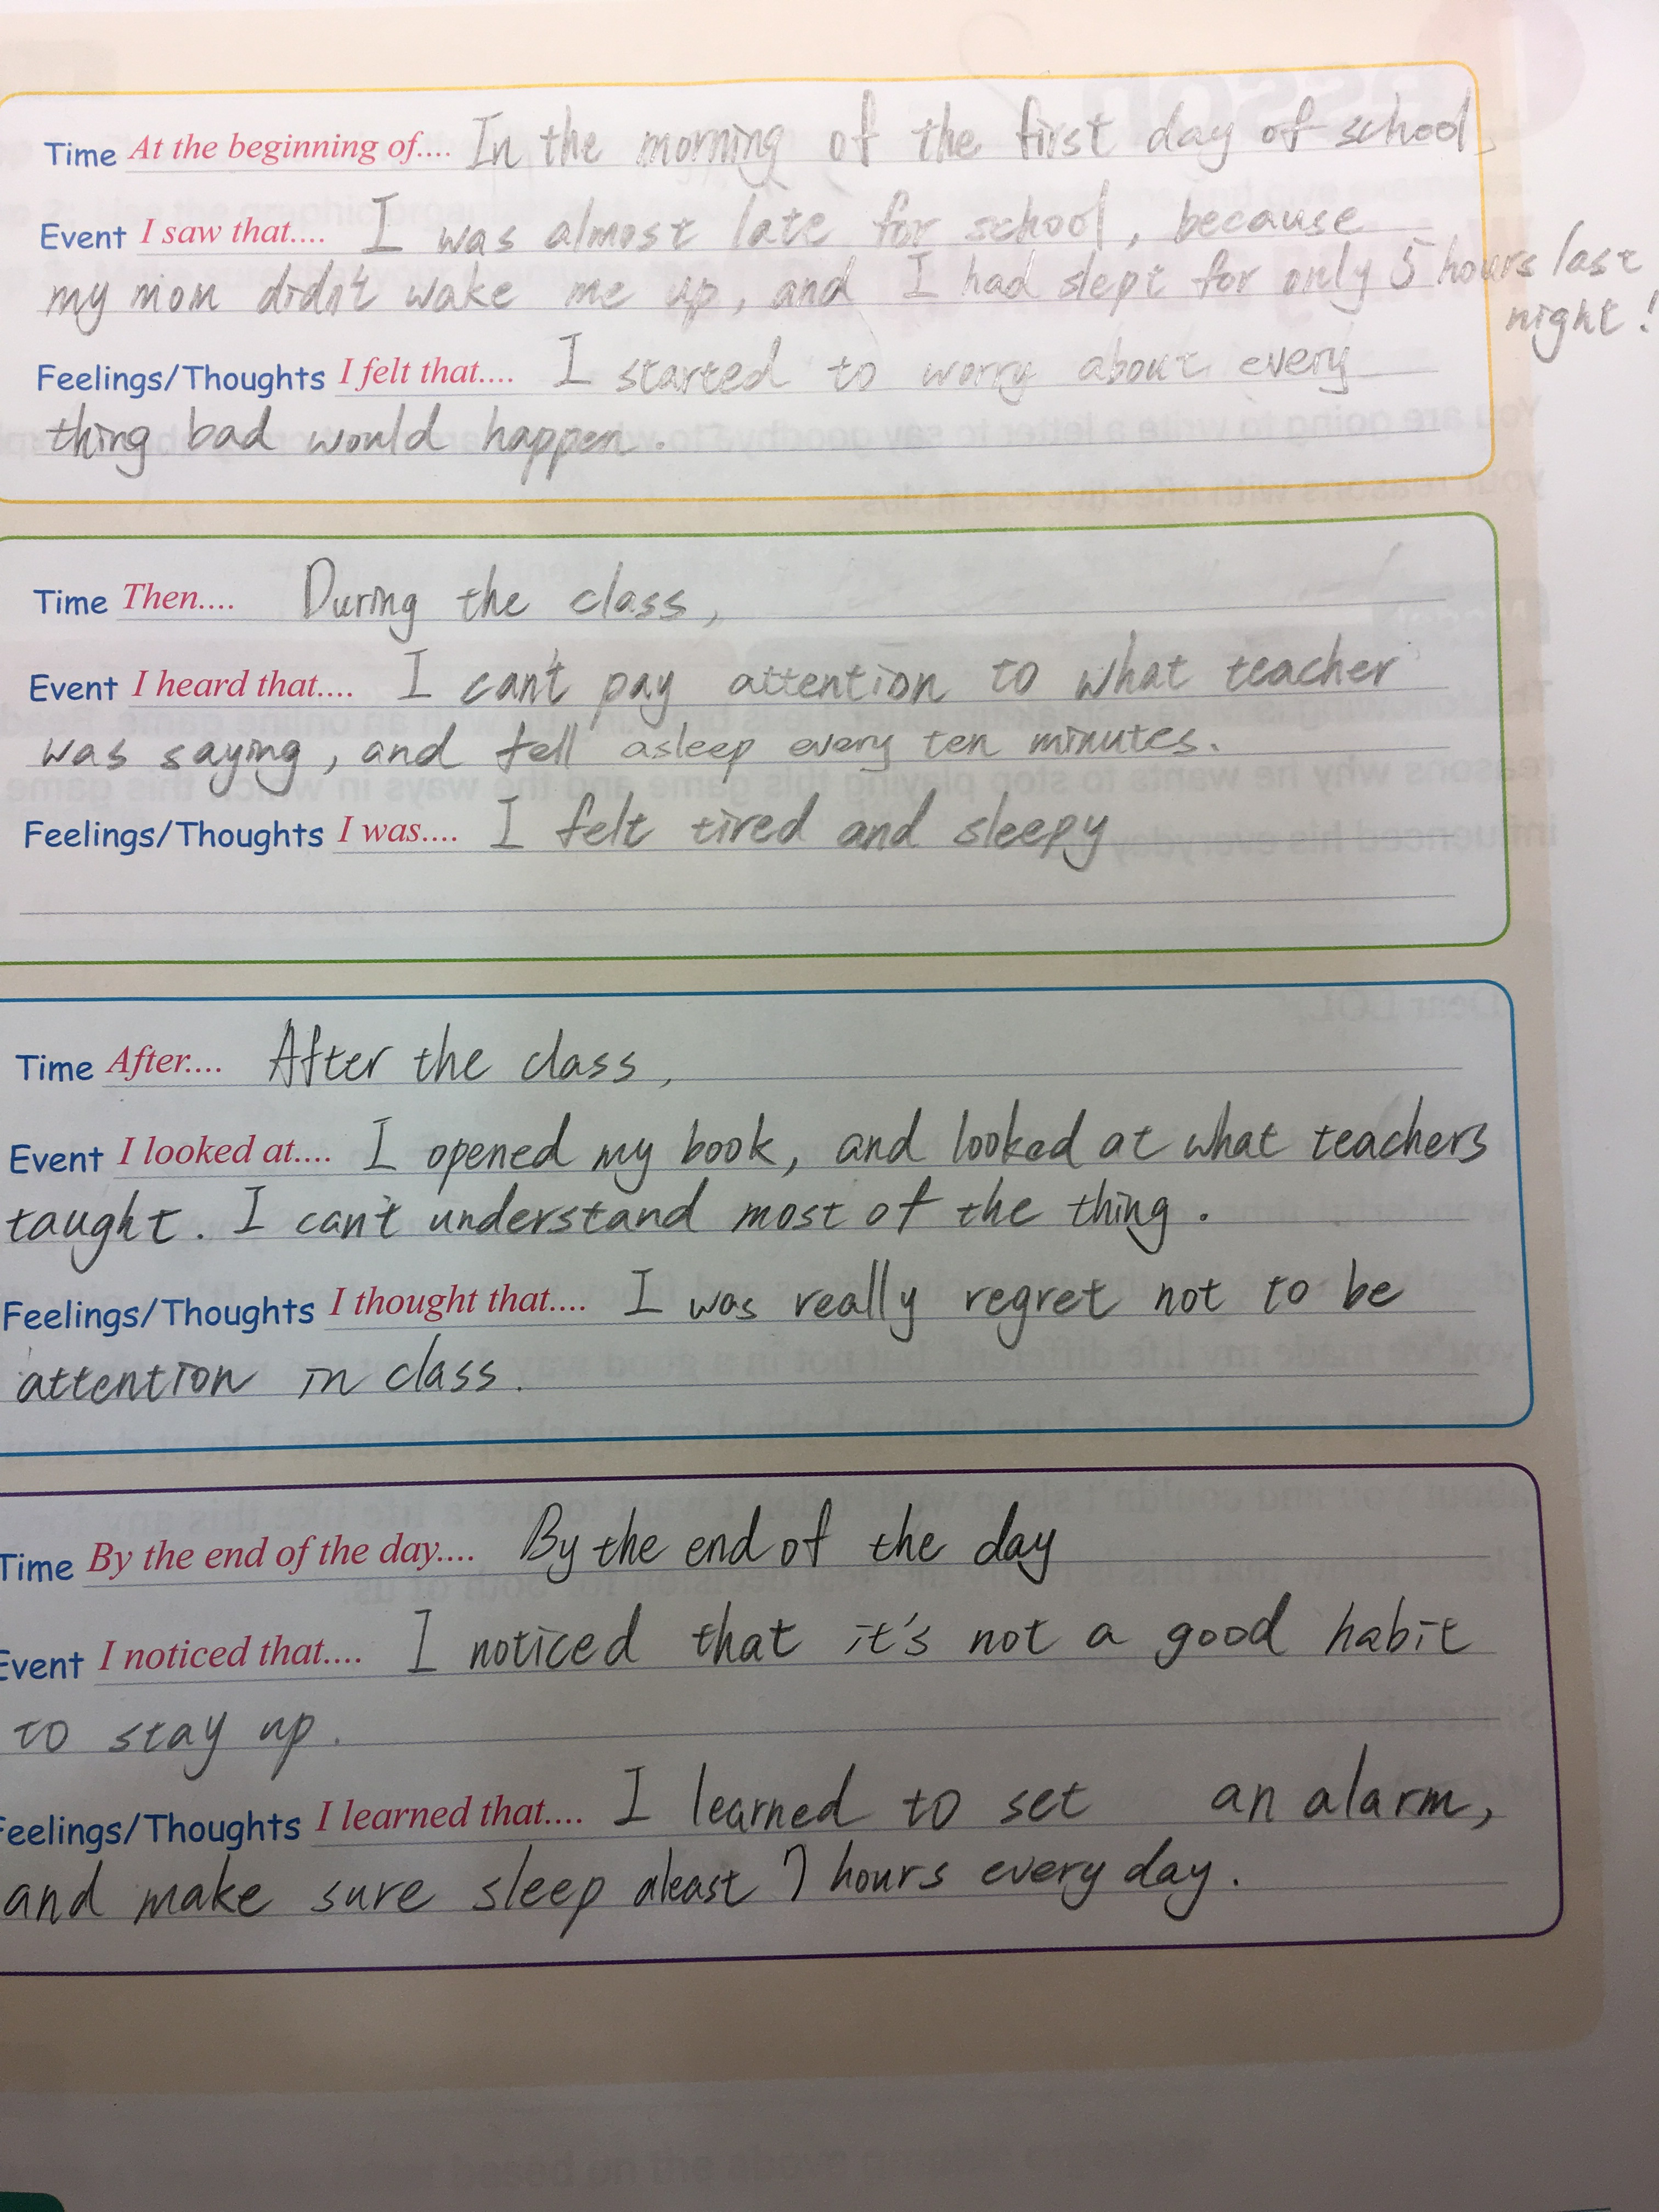 Time At the beginning of.... In the morning of the first day of school,
Event I saw that.... I was almost late for school, because
my mom didn't wake me up, and I had slept for only 5 hours last
night!
Feelings/Thoughts I felt that.... I started to worry about every
thing bad would happen.
Time Then.... During the class,
Event I heard that.... I can't pay attention to what teacher
was saying, and fell asleep every ten minutes.
Feelings/Thoughts I was.... I felt tired and sleepy
Time After.... After the class,
Event I looked at.... I opened my book, and looked at what teachers
taught. I can't understand most of the thing.
Feelings/Thoughts I thought that.... I was really regret not to be
attention in class.
Time By the end of the day.... By the end of the day
Event I noticed that.... I noticed that it's not a good habit
to stay up.
Feelings/Thoughts I learned that.... I learned to set an alarm,
and make sure sleep aleast 7 hours every day.